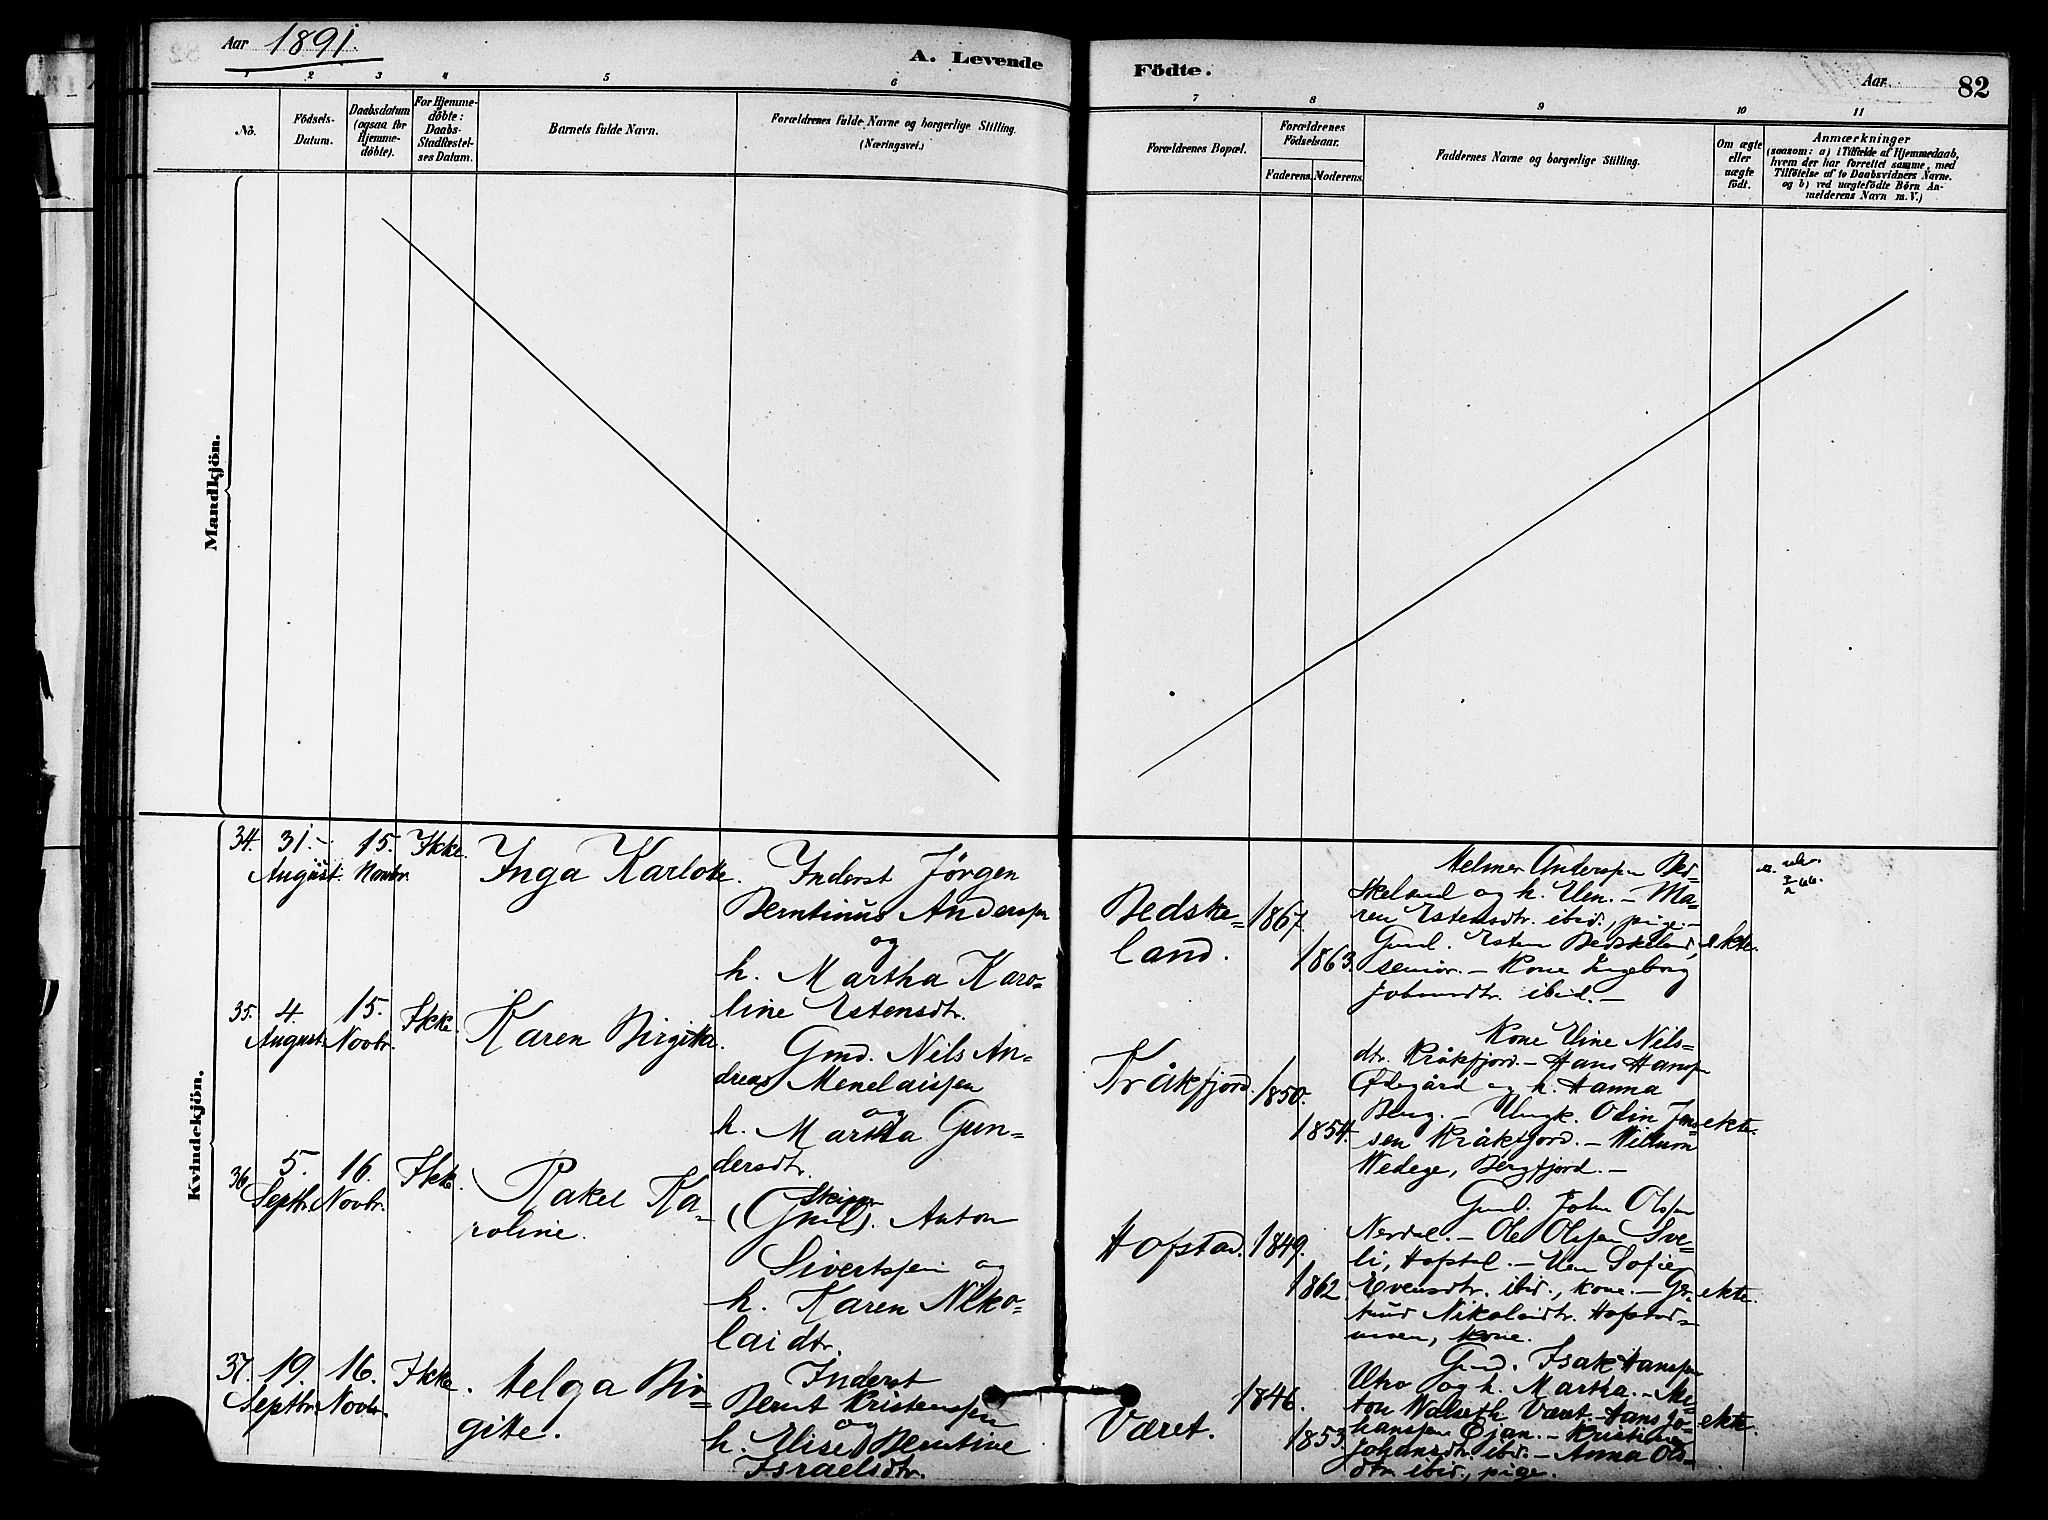 Aar 1891.
A. Levende
Födte.
Aar
82
1 2 3 4 5 6
7 8 9 10 11
No.
Födsels-
Datum.
Daabsdatum
(ogsaa for
Hjemme-
döbte).
For Hjemme-
döbte:
Daabs-
Stadfæstel-
ses Datum.
Barnets fulde Navn.
Forældrenes fulde Navne og borgerlige Stilling.
(Næringsvei.)
Forældrenes Bopæl.
Forældrenes
Födselsaar.
Faderens. Moderens.
Faddernes Navne og borgerlige Stilling.
Om ægte
eller
uægte
födt.
Anmærkninger
(saasom: a) i Tilfælde af Hjemmedaab,
hvem der har forrettet samme, med
Tilföielse af to Daabsvidners Navne,
og b) ved uægtefödte Börn An-
melderens Navn m. V.)
Mandkjön.
Kvindekjön.
34.
31.
August.
15.
Novbr.
Ikke.
Inga Karlotte.
Inderst Jørgen
Berntinus Anderssen
og
h. Martha Karo-
line Estensdtr.
Bedske-
land.
1867.
1863.
Helmer Anderssen Bed-
skeland og h. Elen. - Ma-
ren Estensdtr. ibid., pige. -
Gmd. Esten Bedskeland,
senior. - Kone Ingeborg
Johnsdtr. ibid. -
ekte.
35.
4.
August.
15.
Novbr.
Ikke.
Karen Birgitte.
Gmd. Nils An-
dreas Menelaissen
og
h. Martha Gun-
dersdtr.
Kråkfjord.
1850.
1854.
Kone Eline Nils-
dtr. Kråkfjord. - Hans Hanssen
Ødegård og h. Hanna
Berg. - Ungk. Odin Jens-
sen Kråkfjord. -
Wedege, Bergfjord. -
ekte.
36.
5.
Septbr.
16.
Novbr.
Ikke.
Rakel Ka-
roline.
Skipper
(Gmd). Anton
Sivertssen og
h. Karen Niko-
laidtr.
Hofstad.
1849.
1862
Gmd. John Olssen
Nerdal. - Ole Olssen Sve-
li, Hofstad. - Elen Sofie
Evensdtr. ibid., kone. - Ger-
trud Nikolaidtr. Hofstad-
moen, kone.
ekte.
37.
19.
Septbr.
16.
Novbr.
Ikke.
Helga Bir-
gitte.
Inderst
Bernt Kristenssen
og
h. Elise Berntine
Israelsdtr.
Været.
1846.
1853.
Gmd. Isak Hanssen
Utro og h. Martha. -
Walseth Været. - Hans Jo-
hanssen Øjan. - Kristine
Johansdtr. ibid. - Anna Ols-
dtr. ibid., pige.
ekte.